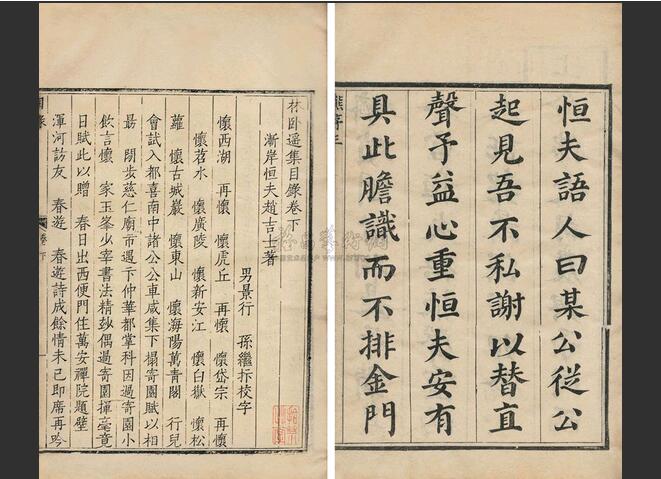 恒夫語人曰某公從公
起見吾不私謝以替直
聲予益心重恒夫安有
具此膽識而不排金門
林卧遥集目錄卷下
漸岸恒夫趙吉士著
男景行 孫繼抃校字
懷西湖 再懷 懷虎丘 再懷 懷岱宗 再懷
懷苕水 懷廣陵 懷新安江 懷白嶽 懷松
蘿 懷古城巖 懷東山 懷海陽萬青閣 行兒
會試入都喜南中諸公公車咸集下榻寄園賦以相
勗 閒步慈仁廟市遇卞仲華都掌科因過寄園小
飲言懷 家玉峯少宰書法精妙偶過寄園揮毫竟
日賦此以贈 春日出西便門住萬安禪院題壁
渾河訪友 春遊 春遊詩成餘情未已即席再吟
卷下